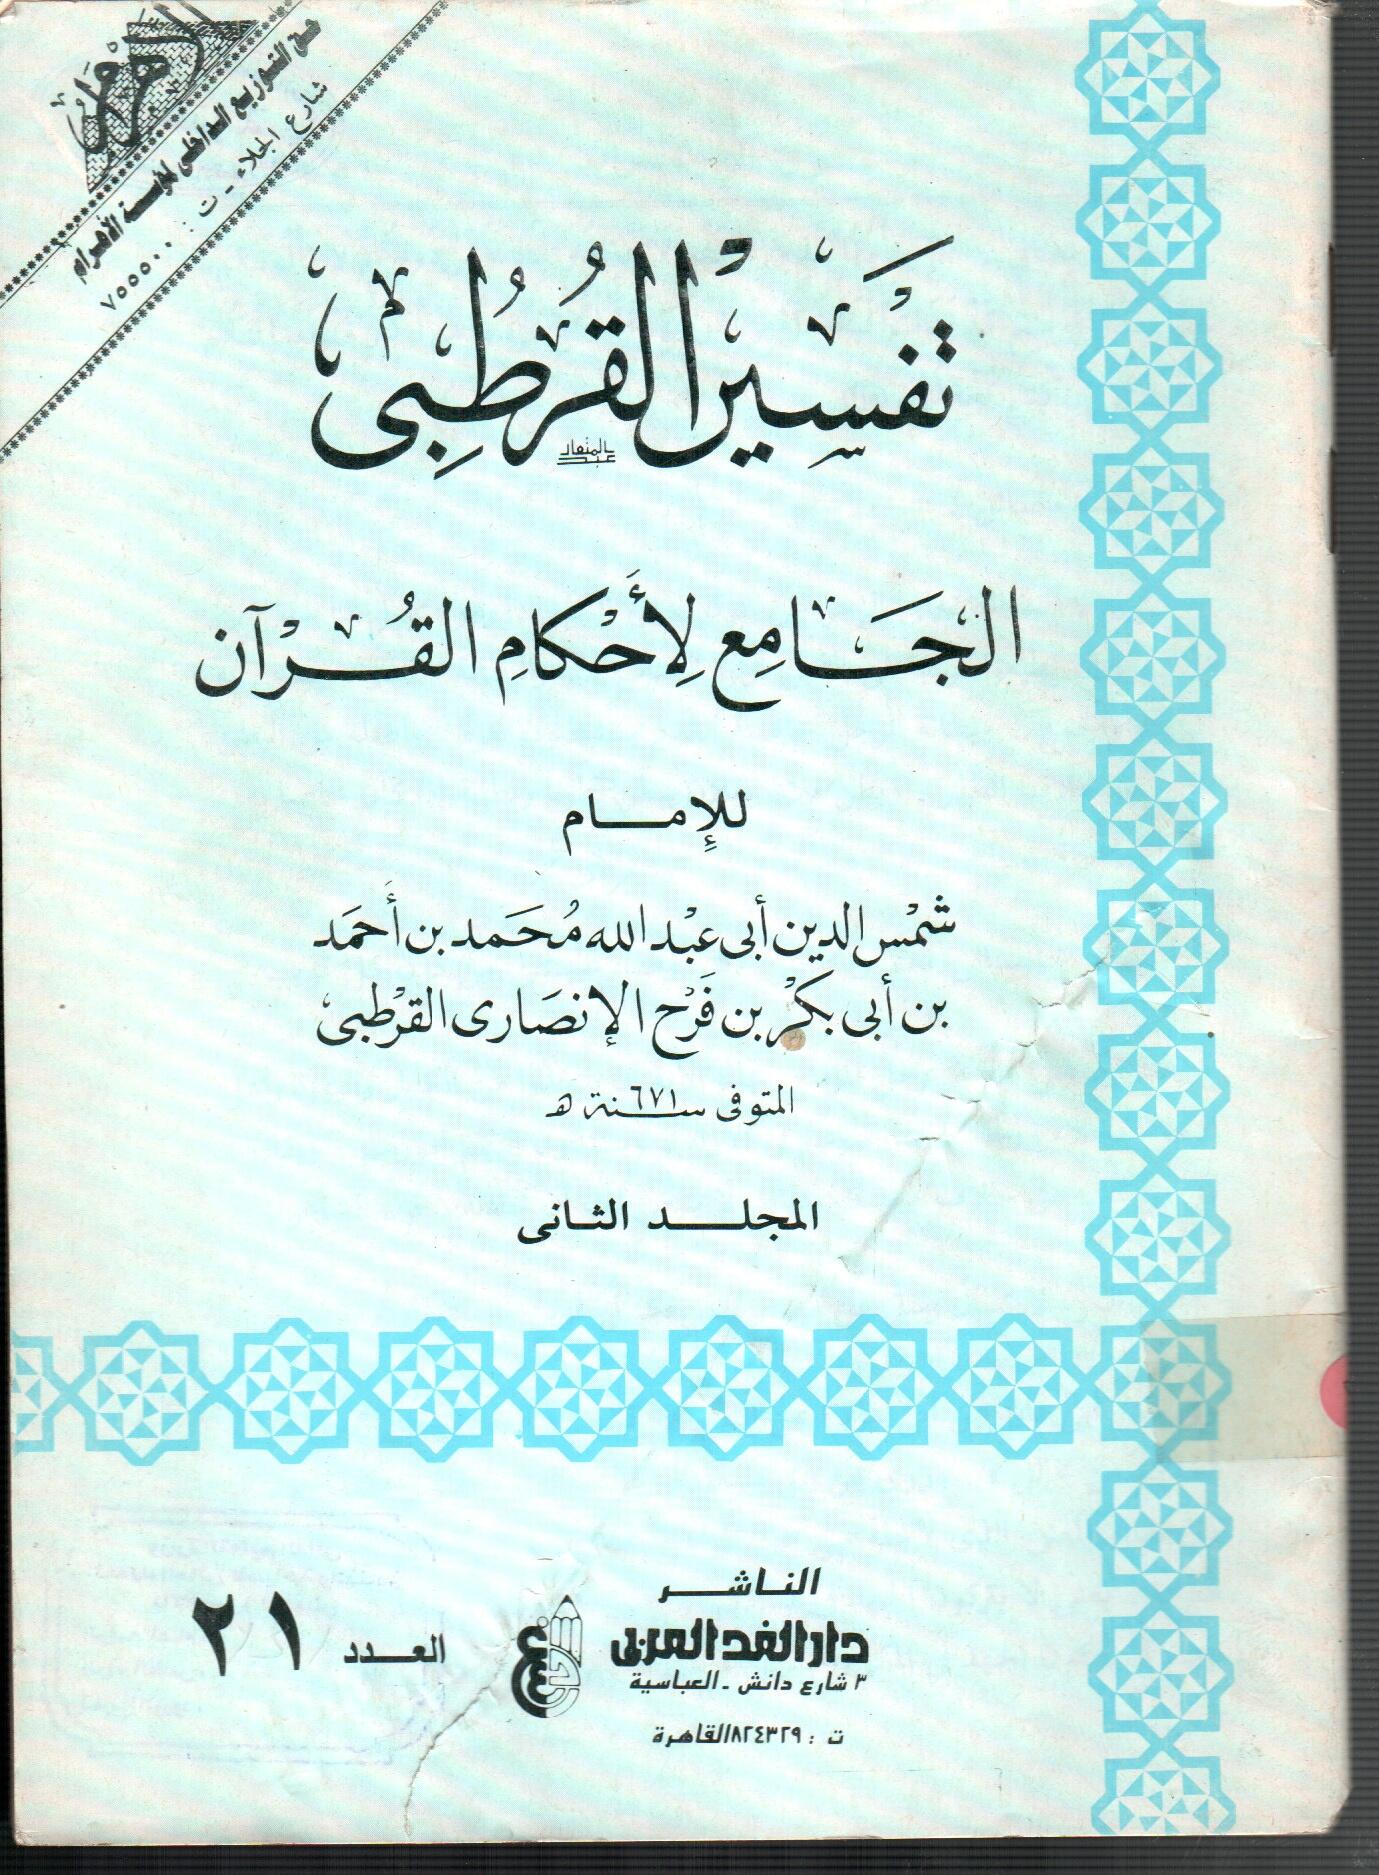 الأهرام
حق التوزيع الداخلى لمؤسسة الأهرام
شارع الجلاء - ت : ٧٥٥٥٠٠
تَفسِير القُرطُبِى
الجَامِع لِأَحْكامِ القُرْآن
للإِمام
شمْس الدين أبى عبْد الله مُحَمد بن أَحمَد
بن أبى بكْر بن فَرْح الإنصَارى القرْطبى
المتوفى سنة ٦٧١ هـ
المجلد الثانى
الناشر
دار الغد العربى
٣ شارع دانش - العباسية
ت : ٨٢٤٣٢٩ القاهرة
العدد ٢١